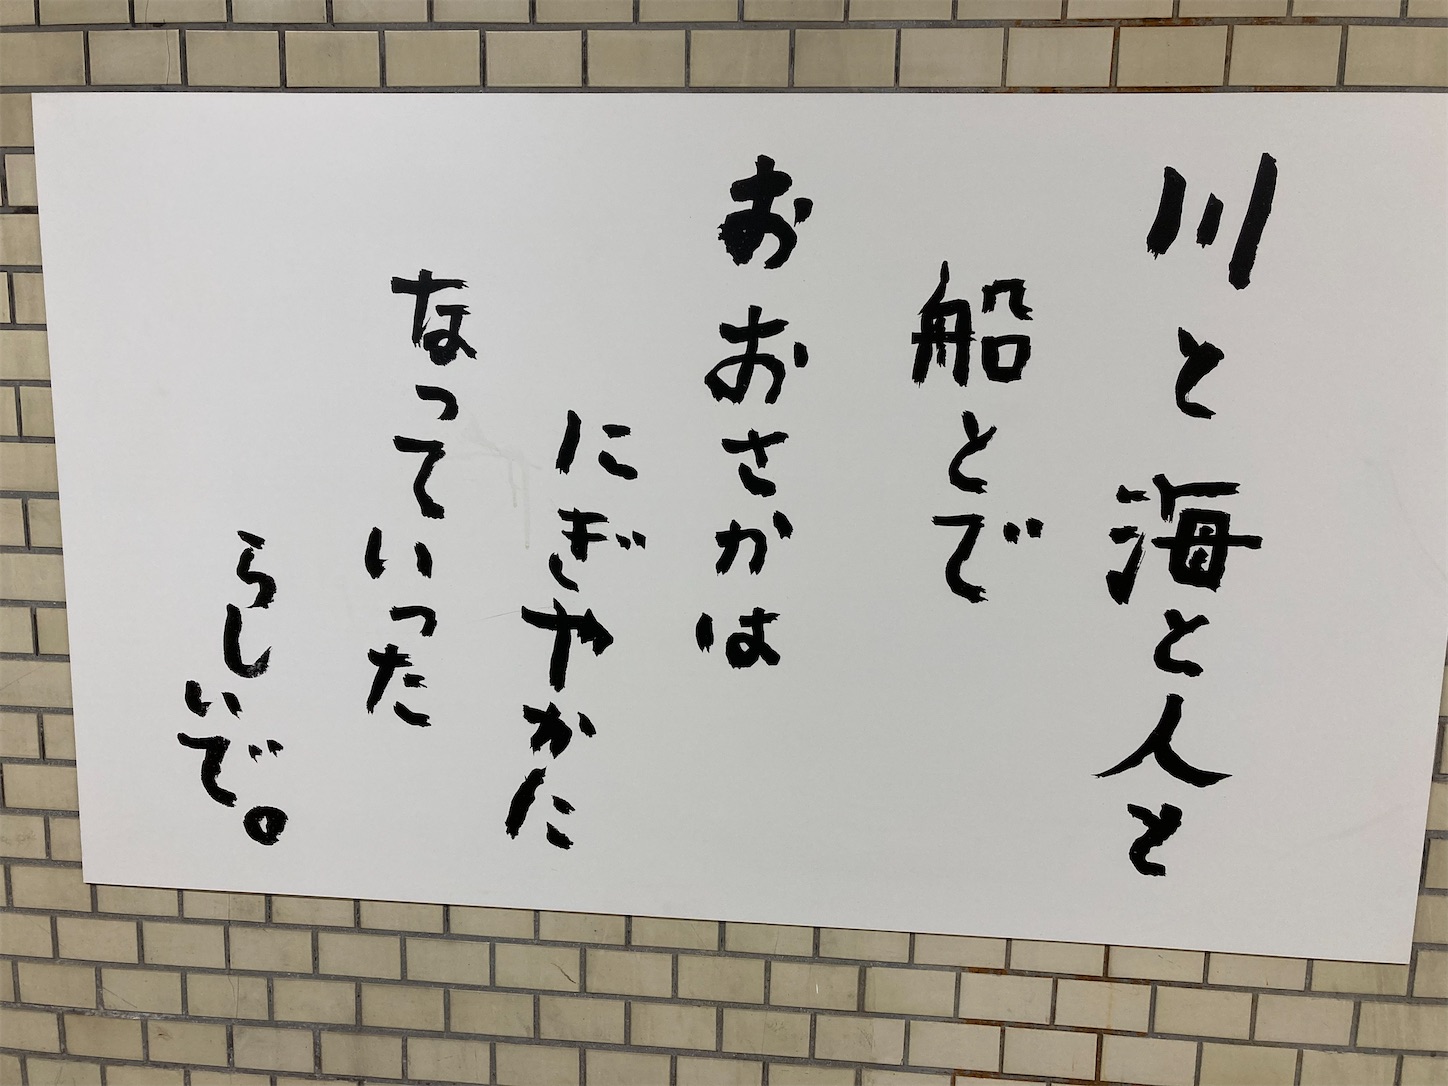 川と海と人と
船とで
おおさかは
にぎやかに
なっていった
らしいで。